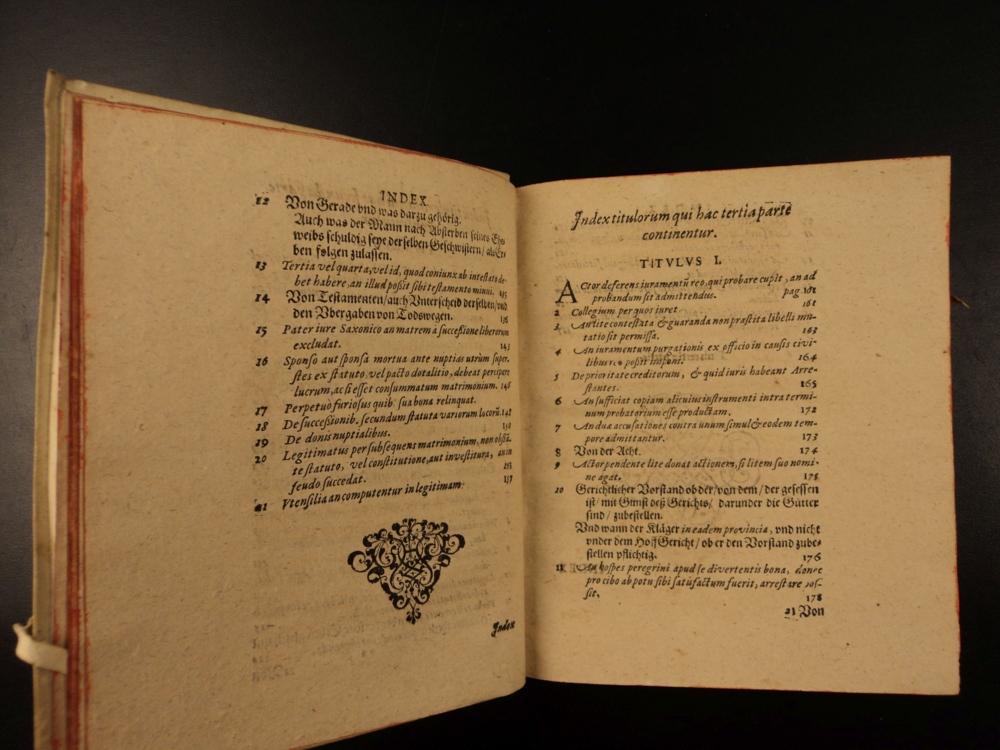 INDEX
12 Von Gerade vnd was darzu gehörig.
Auch was der Mann nach Absterben seines Ehe
weibs schuldig seye derselben Geschwistern / als Er
ben folgen zulassen.
13 Tertia vel quarta, vel id, quod coniunx ab intestato de-
bet habere, an illud possit sibi testamento minui. 135
14 Von Testamenten / auch Vnterscheid derselben / vnd
den Vbergaben von Todswegen. 136
15 Pater iure Saxonico an matrem à successione liberorum
excludat. 143
16 Sponso aut sponsa mortua ante nuptias utrum super-
stes ex statuto, vel pacto dotalitio, debeat percipere
lucrum, ac si esset consummatum matrimonium. 146
17 Perpetuò furiosus quib. sua bona relinquat.
18 De successionib. secundum statuta variorum locorū. 148
19 De donis nuptialibus. 150
20 Legitimatus per subsequens matrimonium, non obstā-
te statuto, vel constitutione, aut investitura, an in
feudo succedat. 151
21 Vtensilia an computentur in legitimam. 157
Index
Index titulorum qui hac tertia parte
continentur.
TITVLVS I.
Actor deferens iuramentū reo, qui probare cupit, an ad
probandum sit admittendus. pag. 161
2 Collegium per quos iuret. 161
3 An lite contestata & guaranda non præstita libelli mu-
tatio sit permissa. 163
4 An iuramentum purgationis ex officio in causis civi-
libus reo possit imponi. 164
5 De prioritate creditorum, & quid iuris habeant Arre-
stantes. 165
6 An sufficiat copiam alicuius instrumenti intra termi-
num probatorium esse productam. 172
7 An duæ accusationes contra unum simul & eodem tem-
pore admittantur. 173
8 Von der Acht. 174
9 Actor pendente lite donat actionem, si litem suo nomi-
ne agat. 175
10 Gerichtlicher Vorstand ob der / von dem / der gesessen
ist / mit Gunst deß Gerichts / darunder die Gütter
sind / zubestellen.
Vnd wann der Kläger in eadem provincia, vnd nicht
vnder dem Hoff Gericht / ob er den Vorstand zube-
stellen pflichtig. 176
11 An hospes peregrini apud se divertentis bona, donec
pro cibo ab potu sibi satisfactum fuerit, arrestare pos-
sit. 178
Von